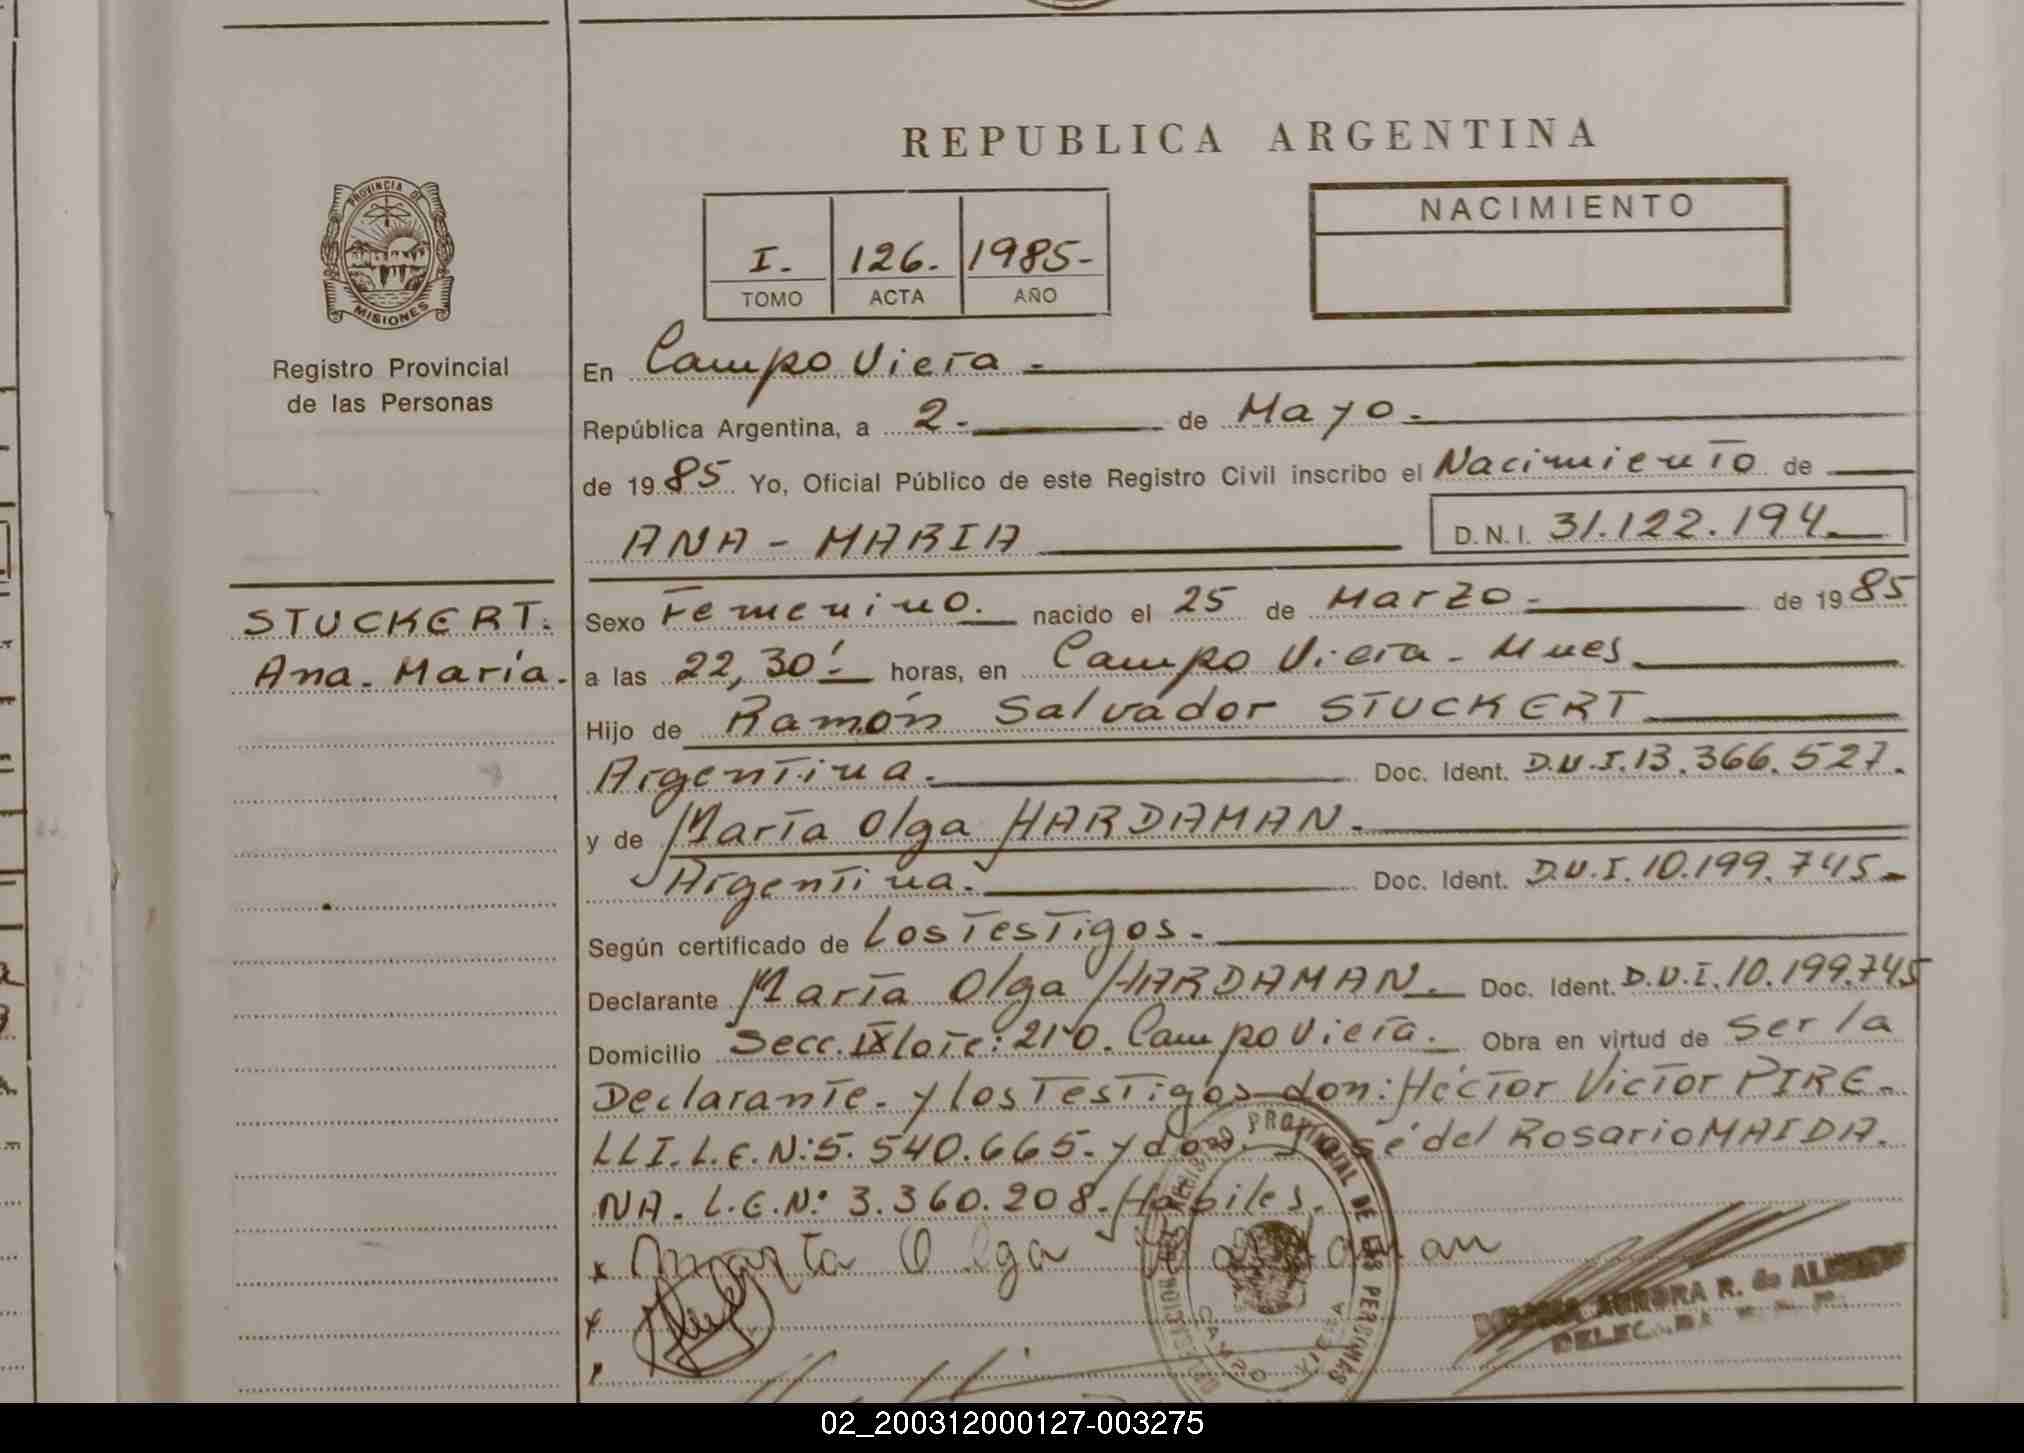 REPUBLICA ARGENTINA
PROVINCIA DE
MISIONES
Registro Provincial
de las Personas
I. 126. 1985-
TOMO ACTA AÑO
NACIMIENTO
En Campo Viera -
República Argentina, a 2- de Mayo-
de 1985 Yo, Oficial Público de este Registro Civil inscribo el Nacimiento de
ANA - MARIA D.N.I. 31.122.194-
STUCKERT.
Ana. María.
Sexo Femenino. nacido el 25 de Marzo- de 1985
a las 22,30'- horas, en Campo Viera - Mnes
Hijo de Ramón Salvador STUCKERT
Argentina. Doc. Ident. D.N.I. 13.366.527.
y de María Olga HARDAMAN.
Argentina. Doc. Ident. D.N.I. 10.199.745-
Según certificado de Los Testigos.
Declarante María Olga HARDAMAN. Doc. Ident. D.N.I. 10.199.745
Domicilio Secc. IX lote: 210. Campo Viera. Obra en virtud de Ser la
Declarante. y los Testigos don: Héctor Victor PIRE-
LLI. L.E.N: 5.540.665- y don José del Rosario MAIDA.
NA. L.E.N: 3.360.208. Hábiles.
x Marta Olga Hardaman
REGISTRO PROVINCIAL DE LAS PERSONAS
CAMPO VIERA
AURORA R. de
DELEGADA
02_200312000127-003275